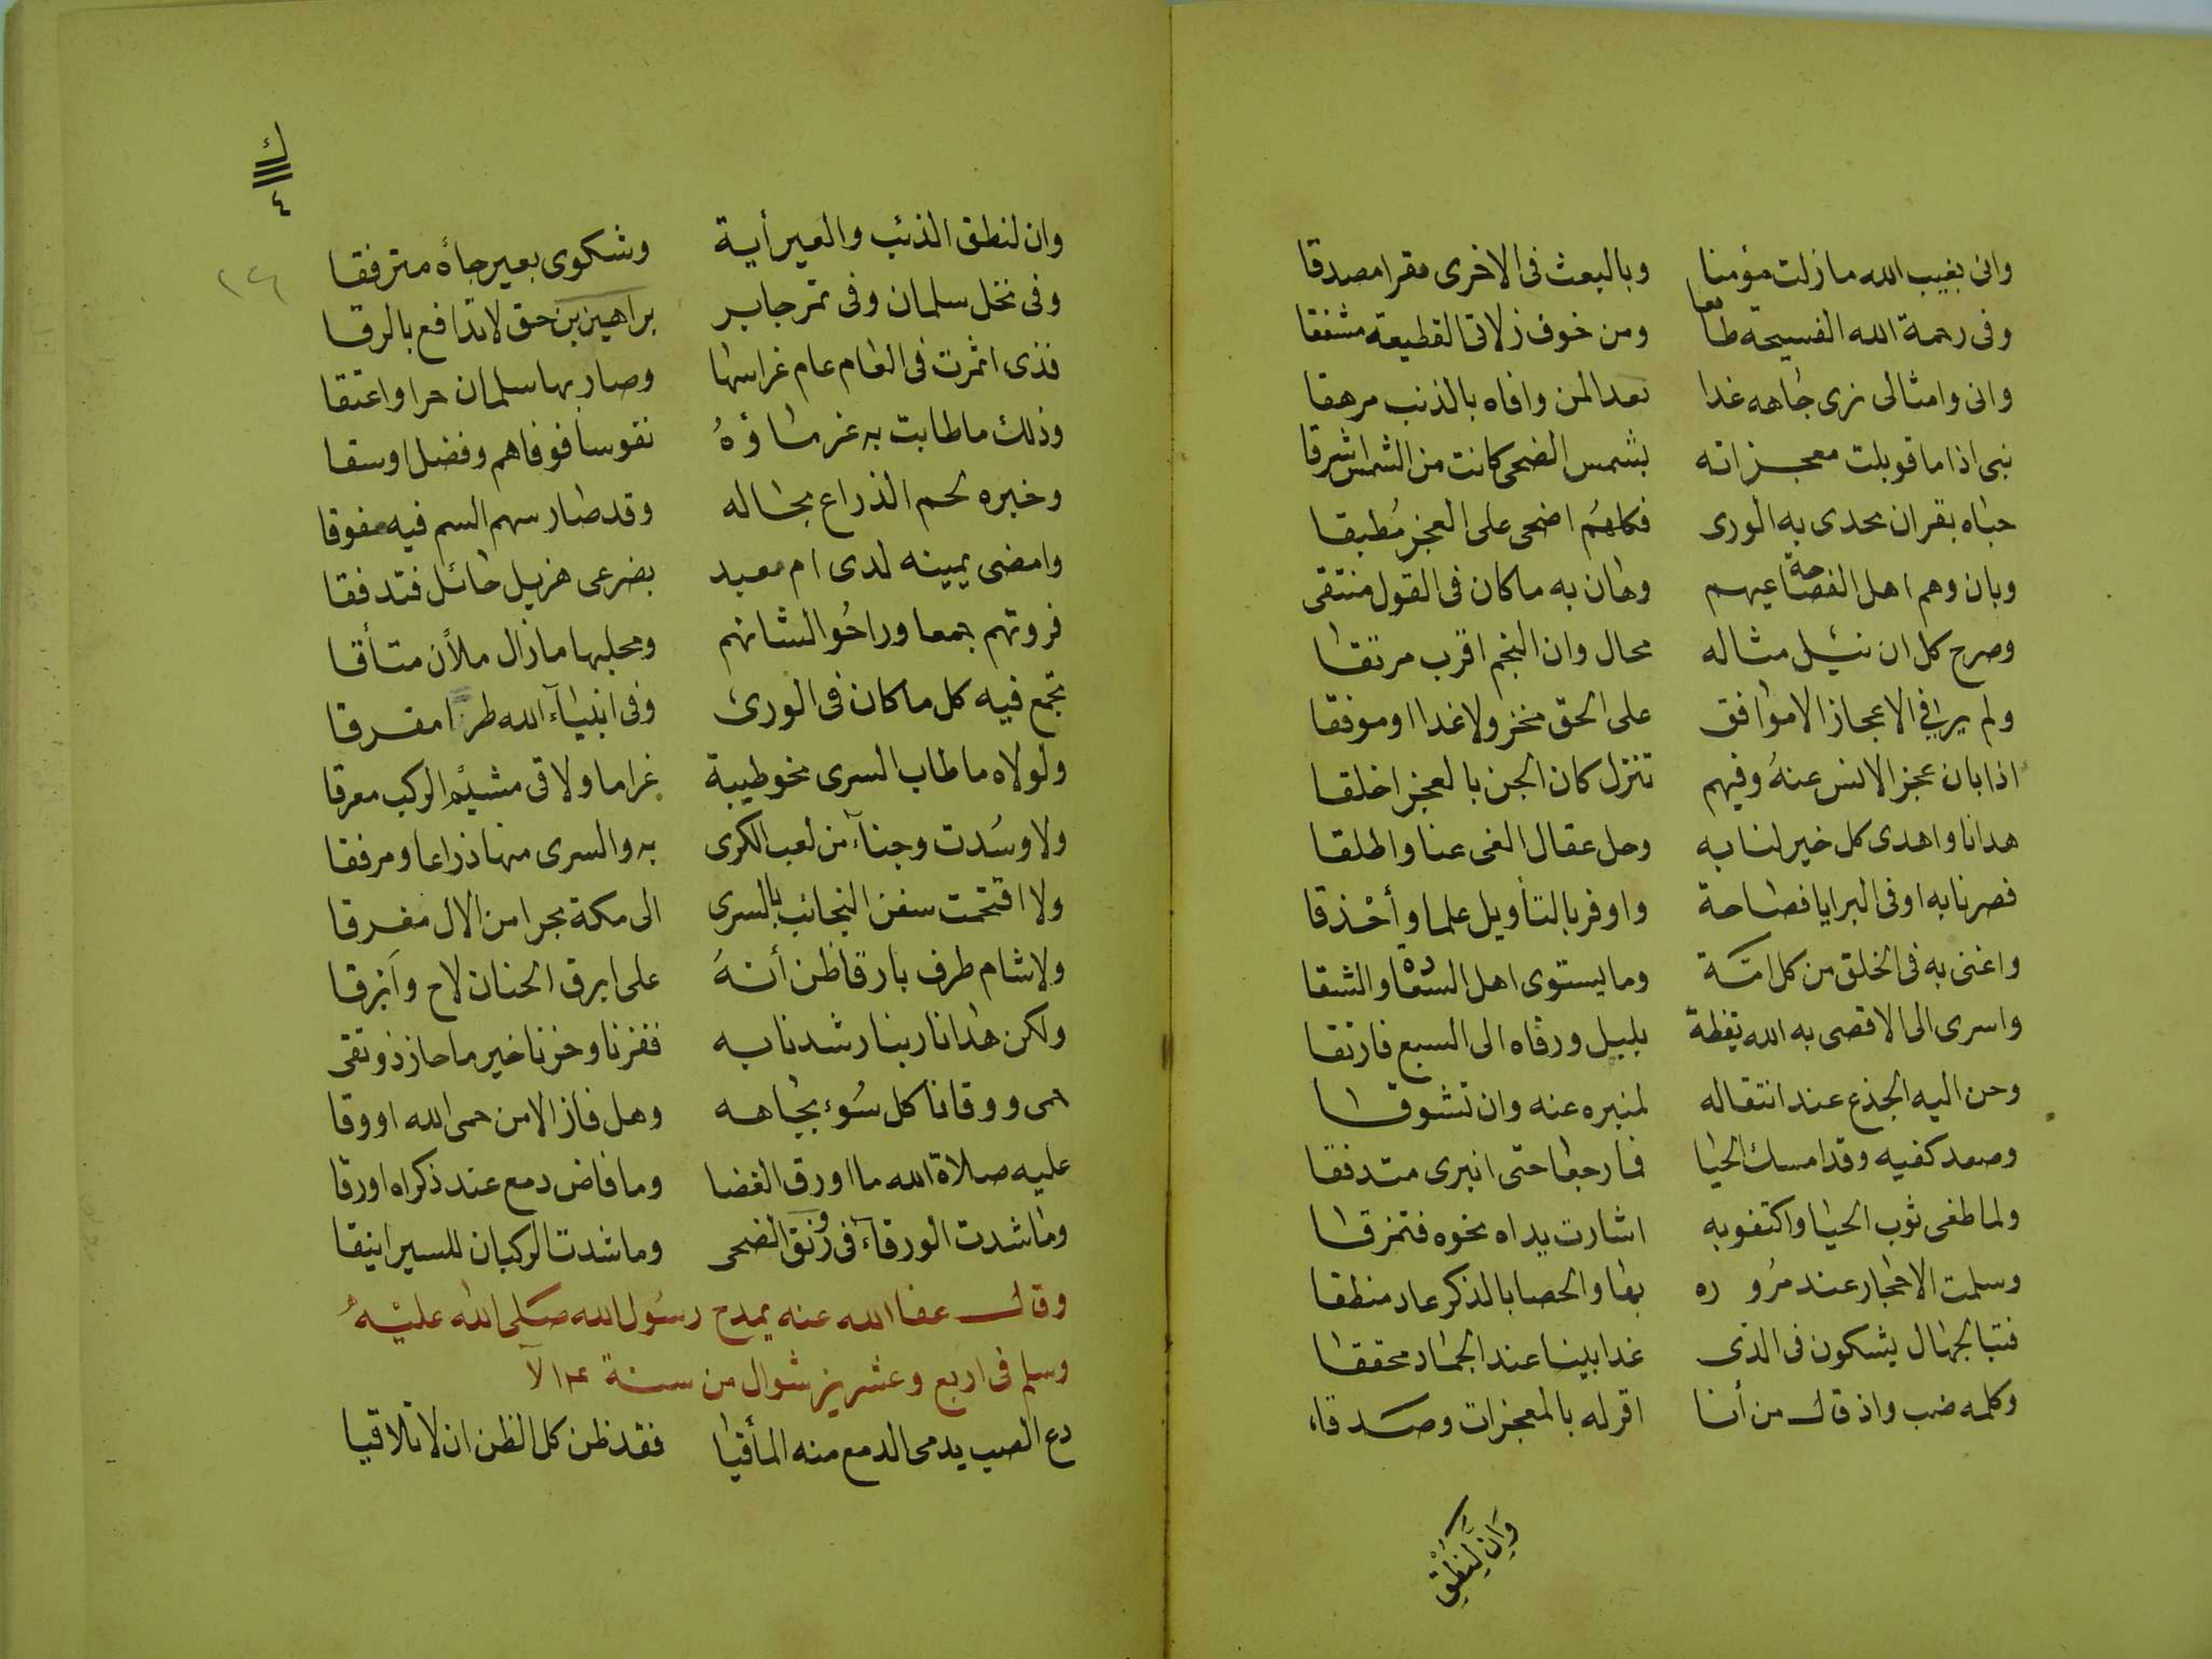 وانى بغيب الله ما زلت مؤمنا وبالبعث فى الاخرى مقرا مصدقا
وفى رحمة الله الفسيحة طامعا ومن خوف زلاتى القطيعة مشفقا
وانى وامثالى نرى جاهه غدا معدا لمن وافاه بالذنب مرهقا
نبى اذا ما قوبلت معجزاته بشمس الضحى كانت من الشمس اشرقا
حباه بقران تحدى به الورى فكلهم اضحى على العجز مُطبقا
وبان وهم اهل الفصاحة عيهم وهان به ما كان فى القول منتقى
وصرح كل ان نيل مثاله محال وان النجم اقرب مرتقا
ولم ير فى الاعجاز الا موافق على الحق منخز ولا غدا او موفقا
اذا بان عجز الانس عنهُ وفيهم تنزل كان الجن بالعجز اخلقا
هدانا واهدى كل خير لنا به وحل عقال الغى عنا واطلقا
فصرنا به اوفى البرايا فصاحة واوفر بالتأويل علما وأحذقا
واغنى به فى الخلق من كل امة وما يستوى اهل السعادة والشقا
واسرى الى الاقصى به الله يقظة بليل ورقاه الى السبع فارتقا
وحن اليه الجذع عند انتقاله لمنبره عنه وان تشوقا
وصعد كفيه وقد امسك الحيا فما رجعا حتى انبرى متدفقا
ولما طفى ثوب الحيا واكتفوبه اشارت يداه نحوه فتمزقا
وسلمت الاحجار عند مُرو ره بها والحصا بالذكر عاد منطقا
فتبا لجهال يشكون فى الذى غدا بينا عند الجماد محققا
وكلمه ضب واذ قال من أنا اقر له بالمعجزات وصدقا
وَانِ لَنِطْقِ
ك
٤
١٢٦
وان لنطق الذئب والعير أية وشكوى بعير جأه مترفقا
وفى نخل سلمان وفى تمر جابر براهين حق لا تدافع بالرقا
فذى اثمرت فى العام عام غراسها وصار بها سلمان حرا واعتقا
وذلك ما طابت به غرماؤهُ نفوسا فوفاهم وفضل اوسقا
وخبره لحم الذراع بحاله وقد صار سهم السم فيه مفوقا
وامضى يمينه لدى ام معبد بضرعى هزيل حائل فتدفقا
فروتهم جمعا وراحُوا لشانهم ومحلبها ما زال ملأن متأقا
تجمع فيه كل ما كان فى الورى وفى انبيآء الله طرا مفرقا
ولولاه ما طاب السرى نحو طيبة غراما ولا قى مشيم الركب معرقا
ولا وسُدت وجنآء من لعب الكرى به والسرى منها ذراعا ومرفقا
ولا اقتحمت سفن النجائب بالسرى الى مكة بحرا من الال مغرقا
ولا شام طرف بارقا ظن أنهُ على ابرق الحنان لاح وابرقا
ولكن هدانا ربنا رشدنا به ففزنا وحزنا خير ما حاز ذو تقى
حمى ووقانا كل سُوء بجاهه وهل فاز الا من حمى الله او وقا
عليه صلاة الله ما اورق الغضا وما فاض دمع عند ذكراه اورقا
وما شدت الورقآء فى رونق الضحى وما شدت الركبان للسير اينقا
وقال عفا الله عنه يمدح رسُول الله صلى الله عليْهُ
وسلم فى اربع وعشرين شوال من سنة
دع الصب يدمى الدمع منه المأقيا فقد ظن كل الظن ان لا تلاقيا